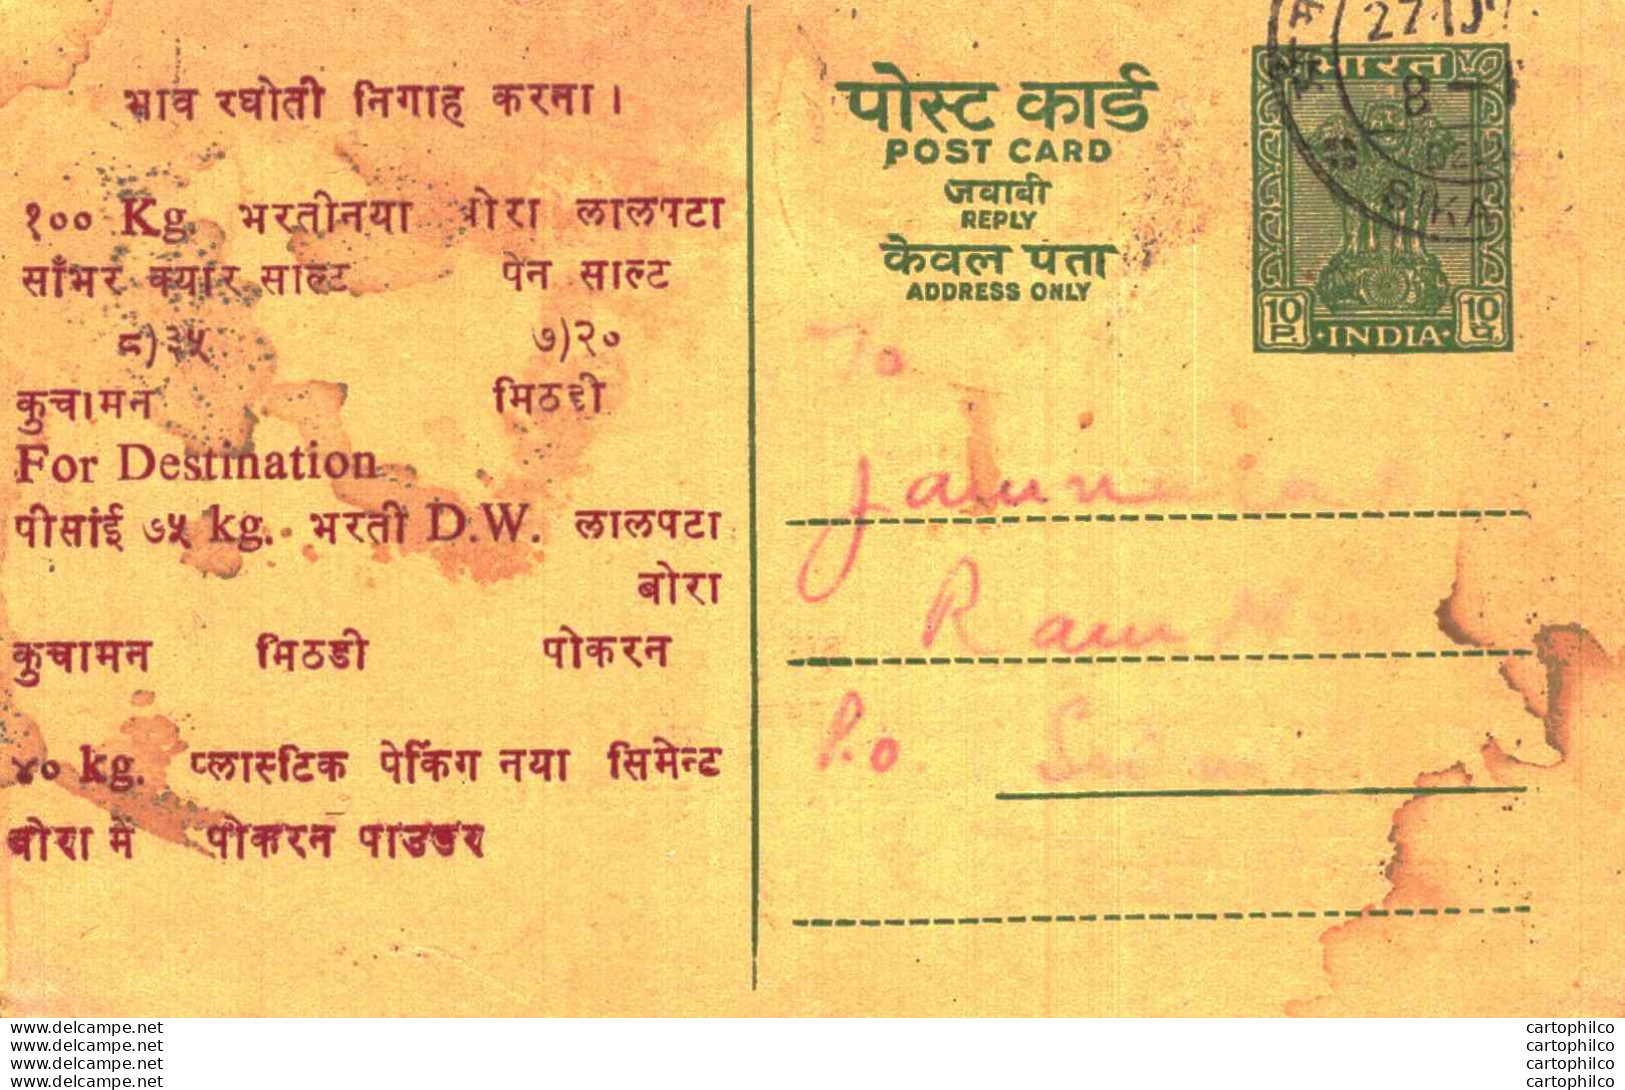 भाव रघोती निगाह करना ।
१०० Kg. भरतीनया बोरा लालपटा
साँभर क्यार साल्ट पेन साल्ट
८)३५ ७)२०
कुचामन मिठडी
For Destination
पीसांई ७५ kg. भरती D.W. लालपटा
बोरा
कुचामन मिठडी पोकरन
४० kg. प्लास्टिक पेकिंग नया सिमेन्ट
बोरा मे पोकरन पाउडर
पोस्ट कार्ड
POST CARD
जवाबी
REPLY
केवल पता
ADDRESS ONLY
भारत
10 P. INDIA 10 पै.
SIKA
To
Ram
P.O.
www.delcampe.net
www.delcampe.net
www.delcampe.net
www.delcampe.net
cartophilco
cartophilco
cartophilco
cartophilco